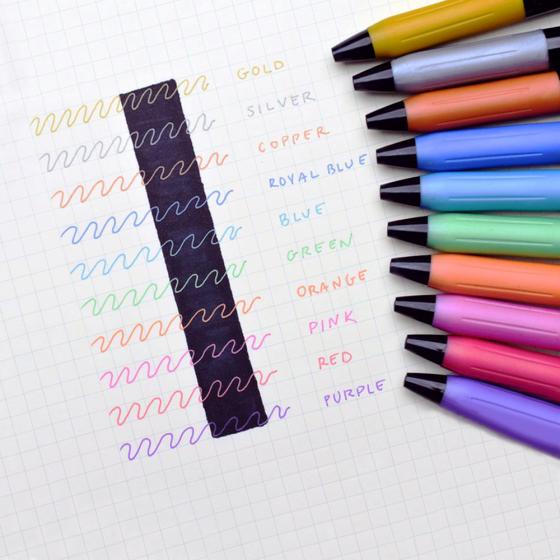 GOLD
SILVER
COPPER
ROYAL BLUE
BLUE
GREEN
ORANGE
PINK
RED
PURPLE